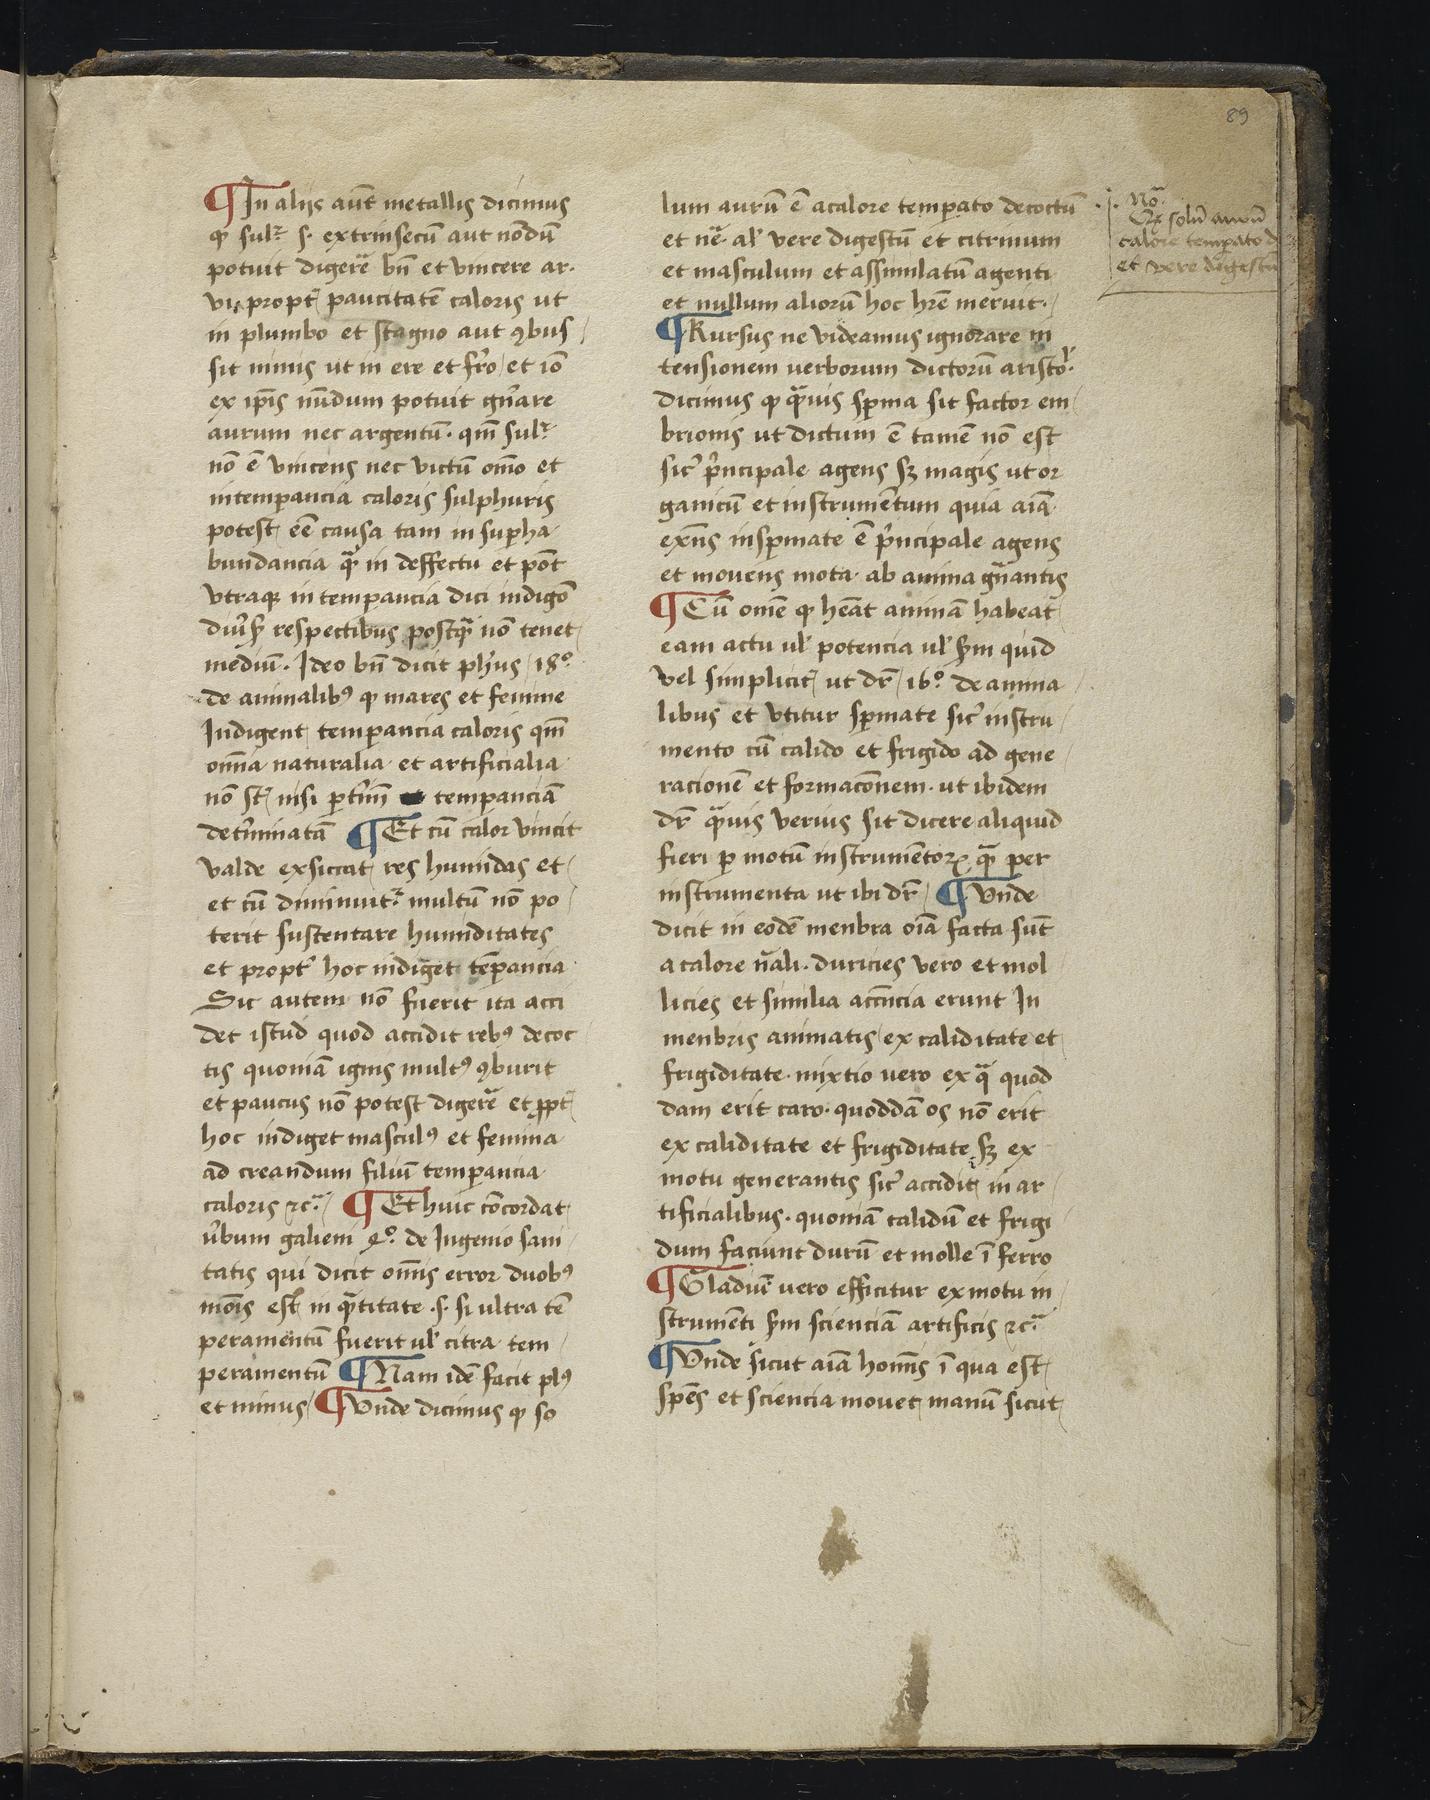 89
¶ In alijs aut̄ metallis dicimus
ꝙ sulr̄ .s. extrinsecū aut nōdū
potuit digere bn̄ et vincere ar.
viuū propt̄ paucitatē caloris ut
in plumbo et stagno aut ꝯbus
sit nimis ut in ere et fr̄o et iō
ex ip̄is nūdum potuit gn̄are
aurum nec argentū. qm̄ sulr̄
nō ē vincens nec victū om̄o et
intemperancia caloris sulphuris
potest eē causa tam in suꝑha
bundancia qᷓ in deffectu et pōt
vtraqꝫ intemperancia dici indigō
diūs̄ respectibus postqᷓ nō tenet
mediū. Ideo bn̄ dicit ph̄us 18º.
de animalibꝰ ꝙ mares et femine
Indigent temperancia caloris qm̄
om̄ia naturalia et artificialia
nō st̄ nisi ꝑ temperanciā
det̄minatā ¶ Et cū calor vincit
valde exsiccat res humidas et
et cū diminuitr̄ multū nō po
terit sustentare humiditates
et propt̄ hoc indiget tēperancia
Sit autem nō fuerit ita acci
det istud quod accidit rebꝰ decoc
tis quoniā ignis multꝰ ꝯburit
et paucus nō potest digere et ꝓpt̄
hoc indiget masculꝰ et femina
ad creandum filiū temperancia
caloris ⁊cᷓ ¶ Et huic cōcordat
v̄bum galieni 4º. de Ingenio sani
tatis qui dicit om̄is error duobꝰ
mōis est in qᷓtitate .s. si ultra tē
peramentū fuerit ul̄ citra tem
peramentū ¶ Nam idē facit plꝰ
et minus ¶ Vnde dicimus ꝙ so
lum aurū ē acalore temperato decoctū
et nē al̄ vere digestū et citrinum
et masculum et assimilatū agenti
et nullum aliorū hoc hr̄e meruit.
¶ Rursus ne videamus ignorare in
tensionem uerborum dictorū aristo.
dicimus ꝙ qᷓuis sperma sit factor em
brionis ut dictum ē tamē nō est
sic̄ pͥncipale agens sꝫ magis ut or
ganicū et instrumētum quia aīa
exn̄s inspermate ē pͥncipale agens
et mouens mota ab anima gn̄antis
¶ Cū om̄e ꝙ heāt animā habeat
eam actu ul̄ potencia ul̄ s̄m quid
vel simplicit̄ ut dr̄ 16º. de anima
libus et vtitur spermate sic̄ instru
mento cū calido et frigido ad gene
racionē et formacōnem. ut ibidem
dr̄ qᷓuis verius sit dicere aliquid
fieri ꝑ motū instrumētoꝝ qᷓ per
instrumenta ut ibi dr̄ ¶ Vnde
dicit in eodē menbra oīa facta sūt
a calore nāli. duricies vero et mol
licies et similia accn̄cia erunt In
menbris animatis ex caliditate et
frigiditate. mixtio uero ex qᷓ quod
dam erit caro. quoddā os nō erit
ex caliditate et frigiditate sꝫ ex
motu generantis sic̄ accidit in ar
tificialibus. quoniā calidū et frigi
dum faciunt durū et molle ī ferro
¶ Gladiū uero efficitur ex motu in
strumēti s̄m scienciā artificis ⁊cᷓ
¶ Vnde sicut aīa homīs ī qua est
spēs et sciencia mouet manū sicut
Nōᷓ
solū aurū
calore temperato d
et vere digestū